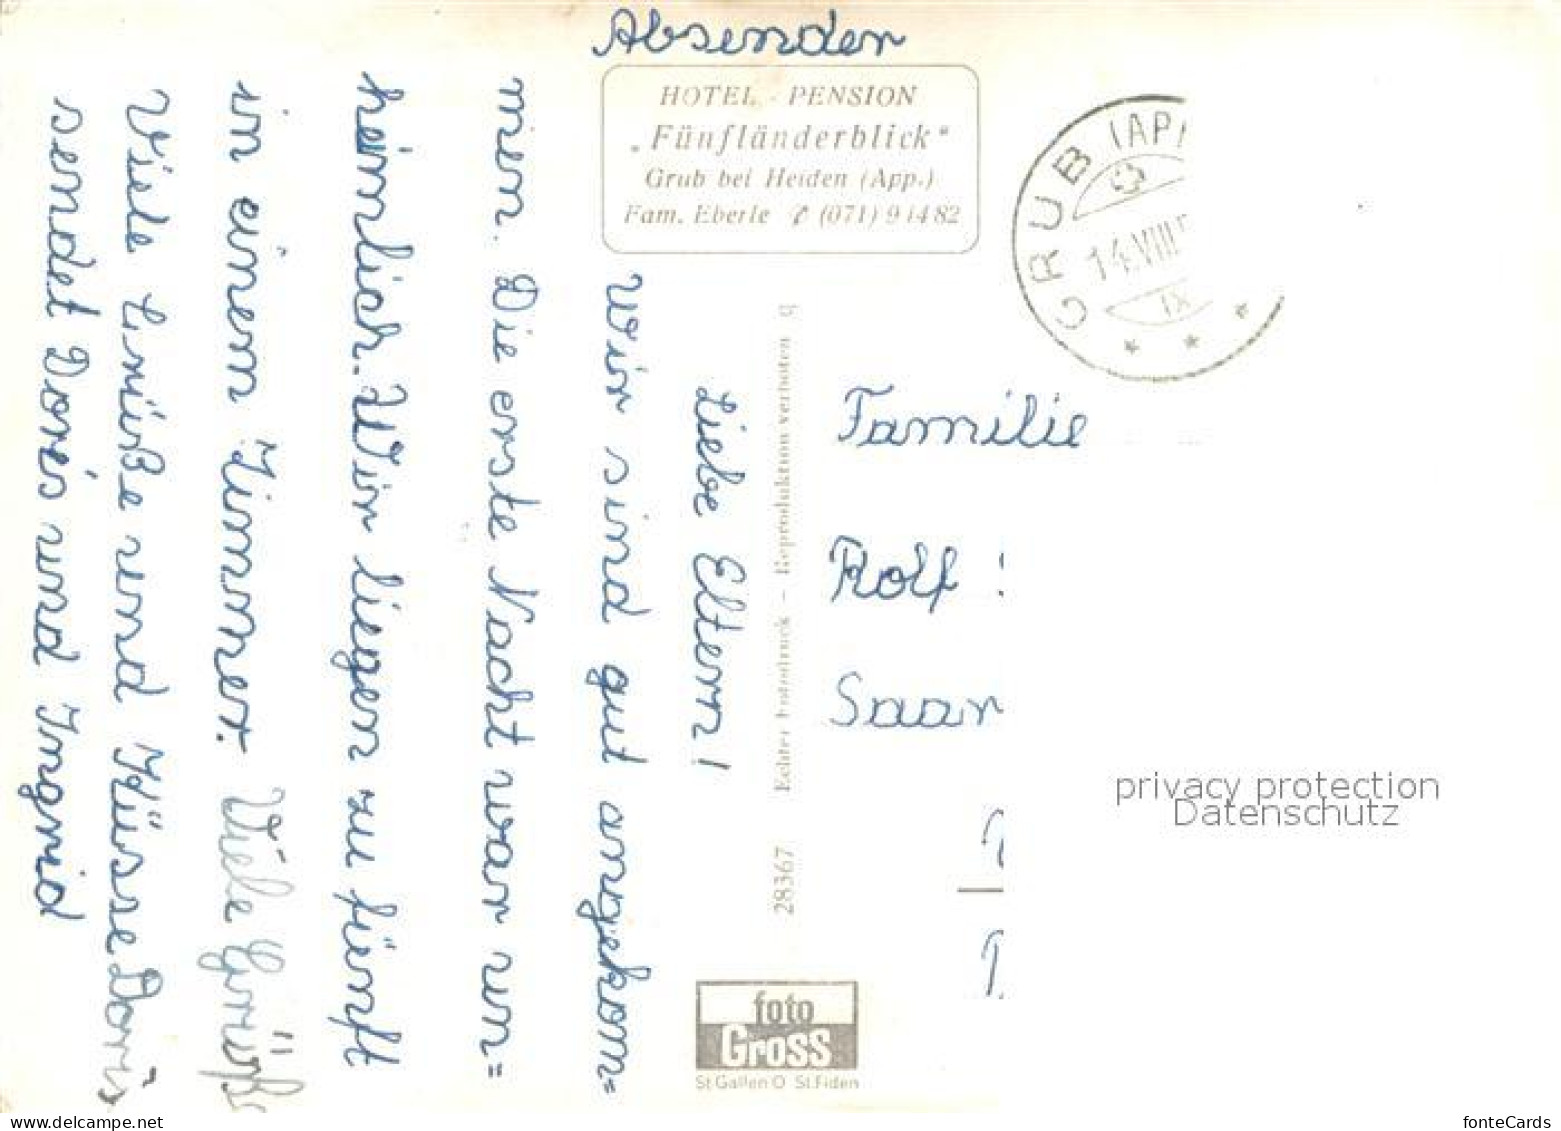 Absender
HOTEL - PENSION
„Fünfländerblick"
Grub bei Heiden (App.)
Fam. Eberle ✆ (071) 9 14 82
GRUB (APP
14.VIII.
IX
Liebe Eltern!
Wir sind gut angekom=
men. Die erste Nacht war un=
heimlich. Wir liegen zu fünft
in einem Zimmer. Viele Grüße
Viele Grüße und Küsse Doris
sendet Doris und Ingrid
28367 Echter Fotodruck – Reproduktion verboten q
Familie
Rolf
Saar
foto
Gross
St Gallen O St. Fiden
privacy protection
Datenschutz
www.delcampe.net
fonteCards